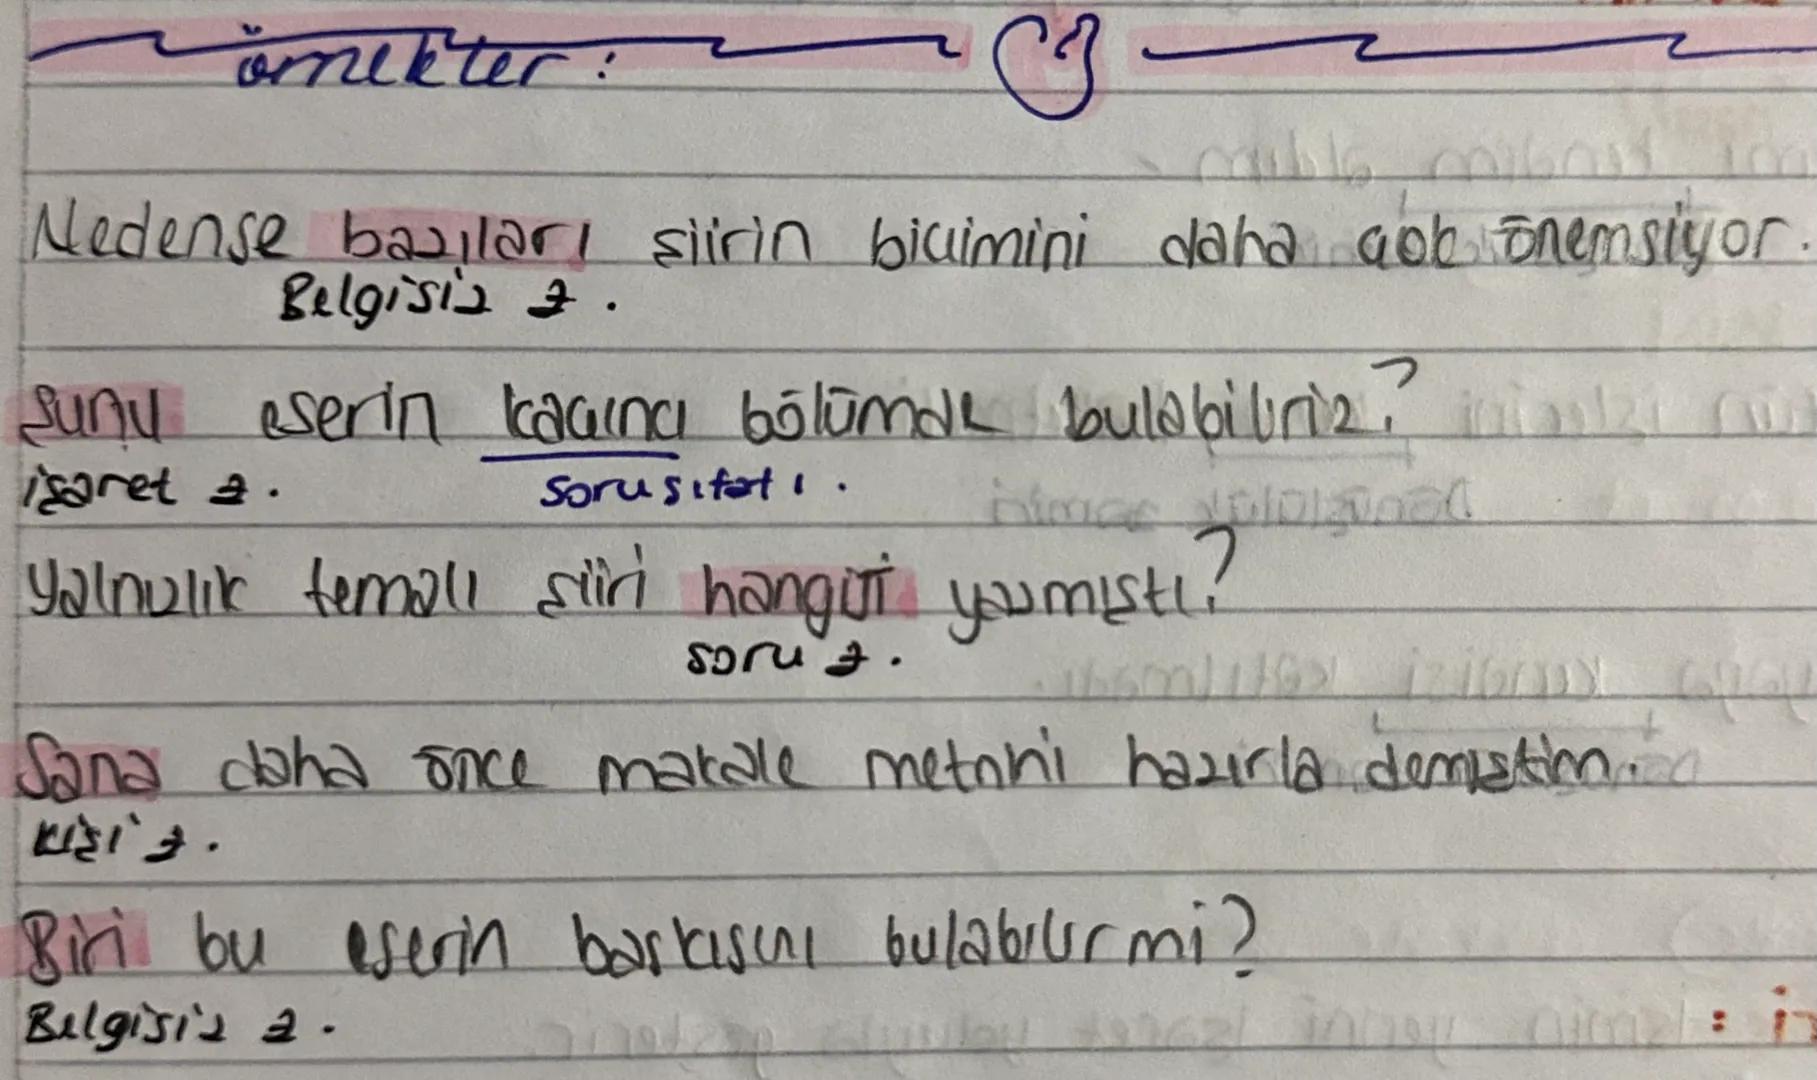 örnekler:
Nedense bazıları şiirin biçimini daha çok önemsiyor.
Belgisiz z.
Şunu eserin kaçıncı bölümde bulabiliriz?
işaret z. soru sıfatı.
Yalnızlık temalı şiiri hangisi yazmıştı?
soru z.
Sana daha önce makale metnini hazırla demiştim.
kişi z.
Biri bu eserin baskısını bulabilir mi?
Belgisiz z.